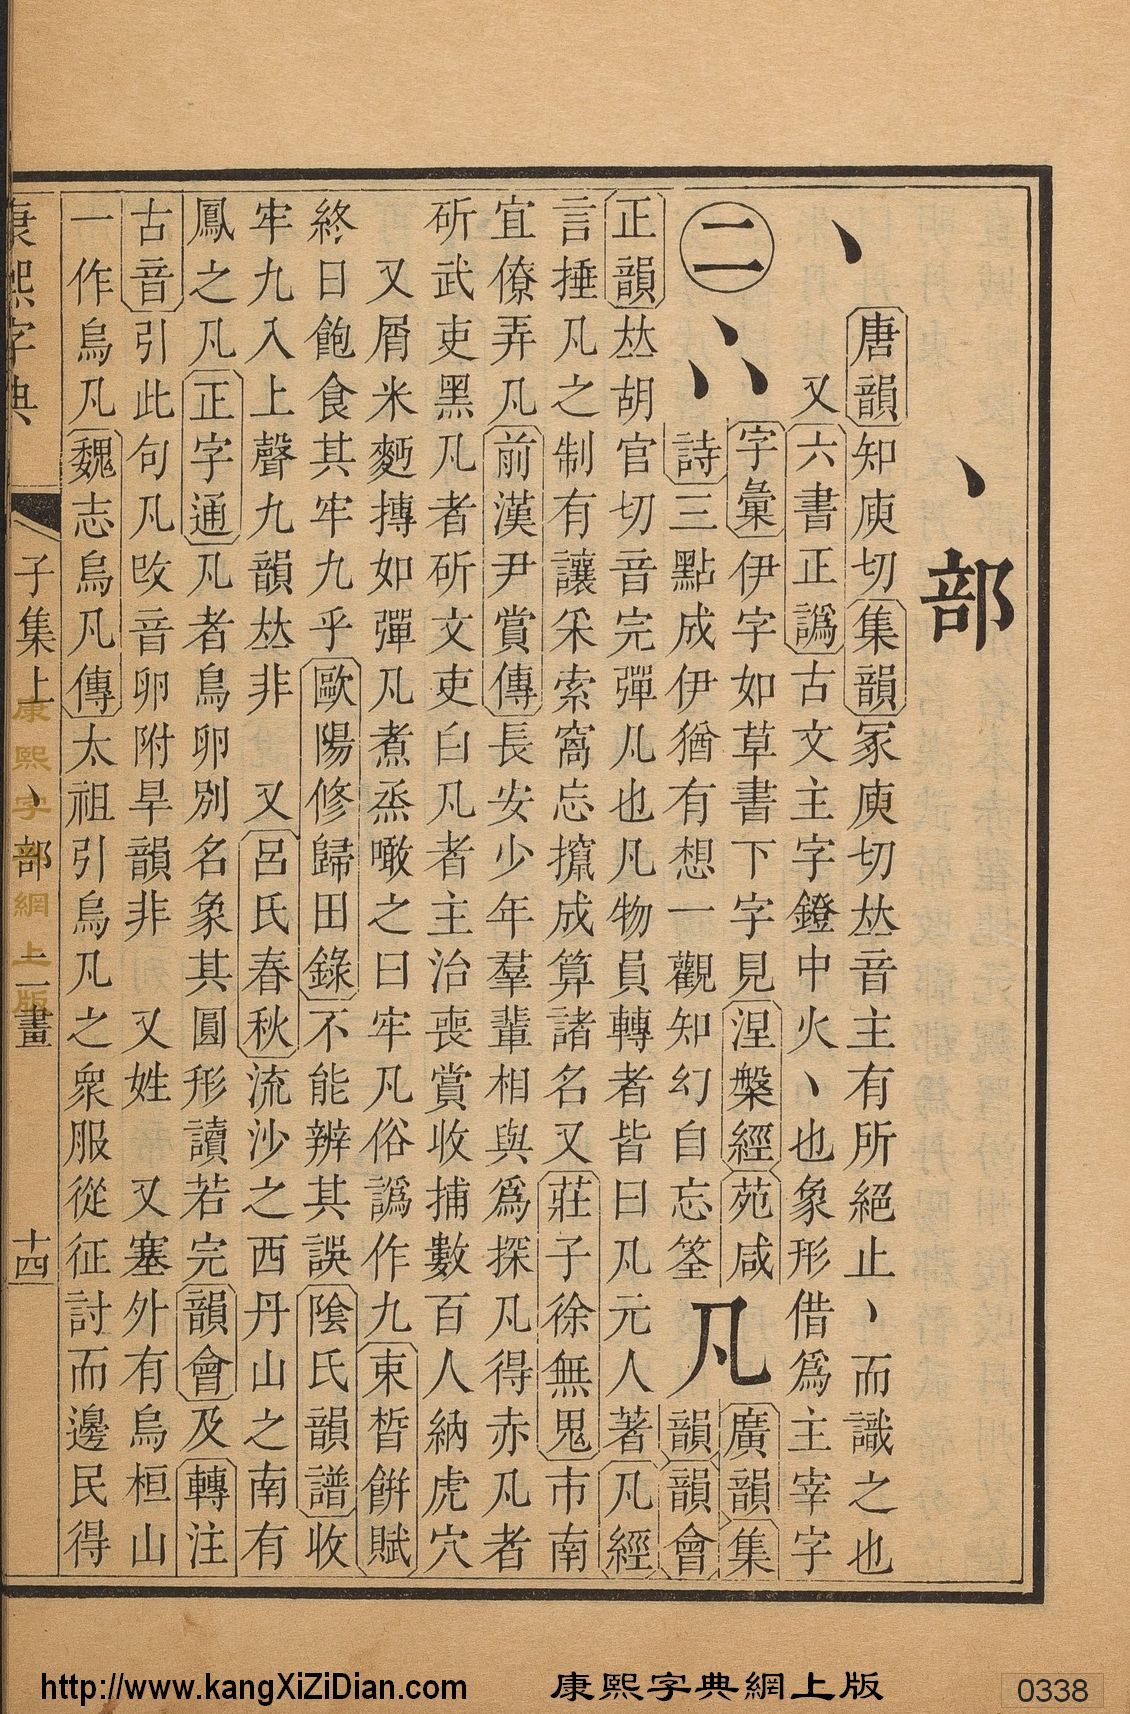 丶部
丶
唐韻知庾切集韻冢庾切𠀤音主有所絕止丶而識之也
又六書正譌古文主字鐙中火丶也象形借爲主宰字
二
字彙伊字如草書下字見涅槃經苑咸
詩三點成伊猶有想一觀知幻自忘筌
凡
廣韻集
韻韻會
正韻𠀤胡官切音完彈凡也凡物員轉者皆曰凡元人著凡經
言捶凡之制有讓采索窩忘攛成算諸名又莊子徐無鬼市南
宜僚弄凡前漢尹賞傳長安少年羣輩相與爲探凡得赤凡者
斫武吏黑凡者斫文吏白凡者主治喪賞收捕數百人納虎穴
又屑米麪摶如彈凡煮烝噉之曰牢凡俗譌作九束皙餠賦
終日飽食其牢九乎歐陽修歸田錄不能辨其誤陰氏韻譜收
牢九入上聲九韻𠀤非 又呂氏春秋流沙之西丹山之南有
鳳之凡正字通凡者鳥卵別名象其圓形讀若完韻會及轉注
古音引此句凡改音卵附旱韻非 又姓 又塞外有烏桓山
一作烏凡魏志烏凡傳太祖引烏凡之衆服從征討而邊民得
康熙字典
子集上
丶部
二畫
十四
康熙字典網上版
http://www.kangXiZiDian.com
康熙字典網上版
0338